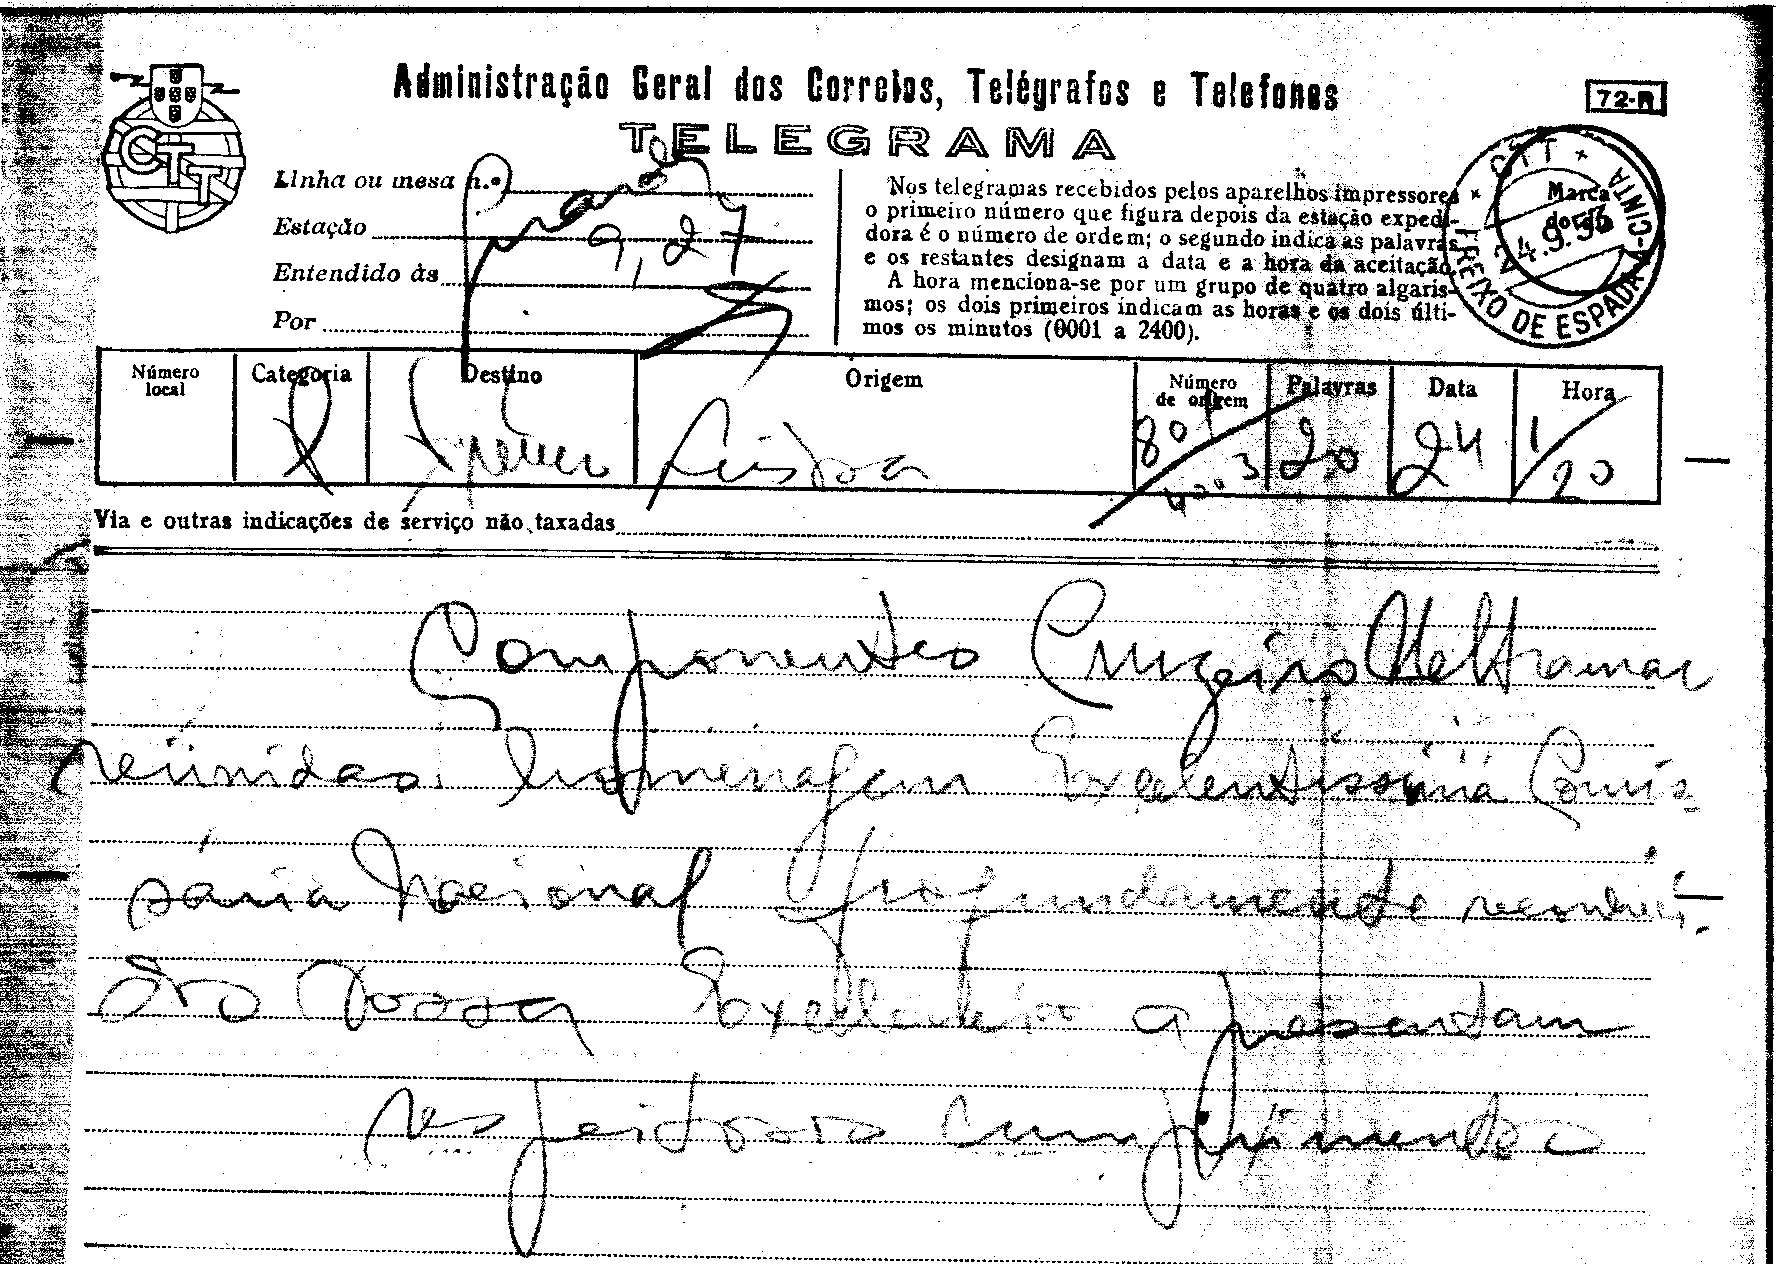 Administração Geral dos Correios, Telégrafos e Telefones
72-R
TELEGRAMA
CTT
Linha ou mesa n.º
Estação
9,27
Entendido às
Por
Nos telegramas recebidos pelos aparelhos impressores
o primeiro número que figura depois da estação expedi-
dora é o número de ordem; o segundo indica as palavras
e os restantes designam a data e a hora da aceitação.
A hora menciona-se por um grupo de quatro algaris-
mos; os dois primeiros indicam as horas e os dois últi-
mos os minutos (0001 a 2400).
Marca do dia
CTT
FREIXO DE ESPADA-A-CINTA
Número local
Categoria
Destino
Origem
Número de origem
Palavras
Data
Hora
Lisboa
20
24
1/20
Via e outras indicações de serviço não taxadas
Componentes Cruzeiro Ultramar
reünidos homenagem Excelentissima Comis
sária Nacional profundamente reconheci
do Vossa Excelencia apresentam
respeitosos cumprimentos